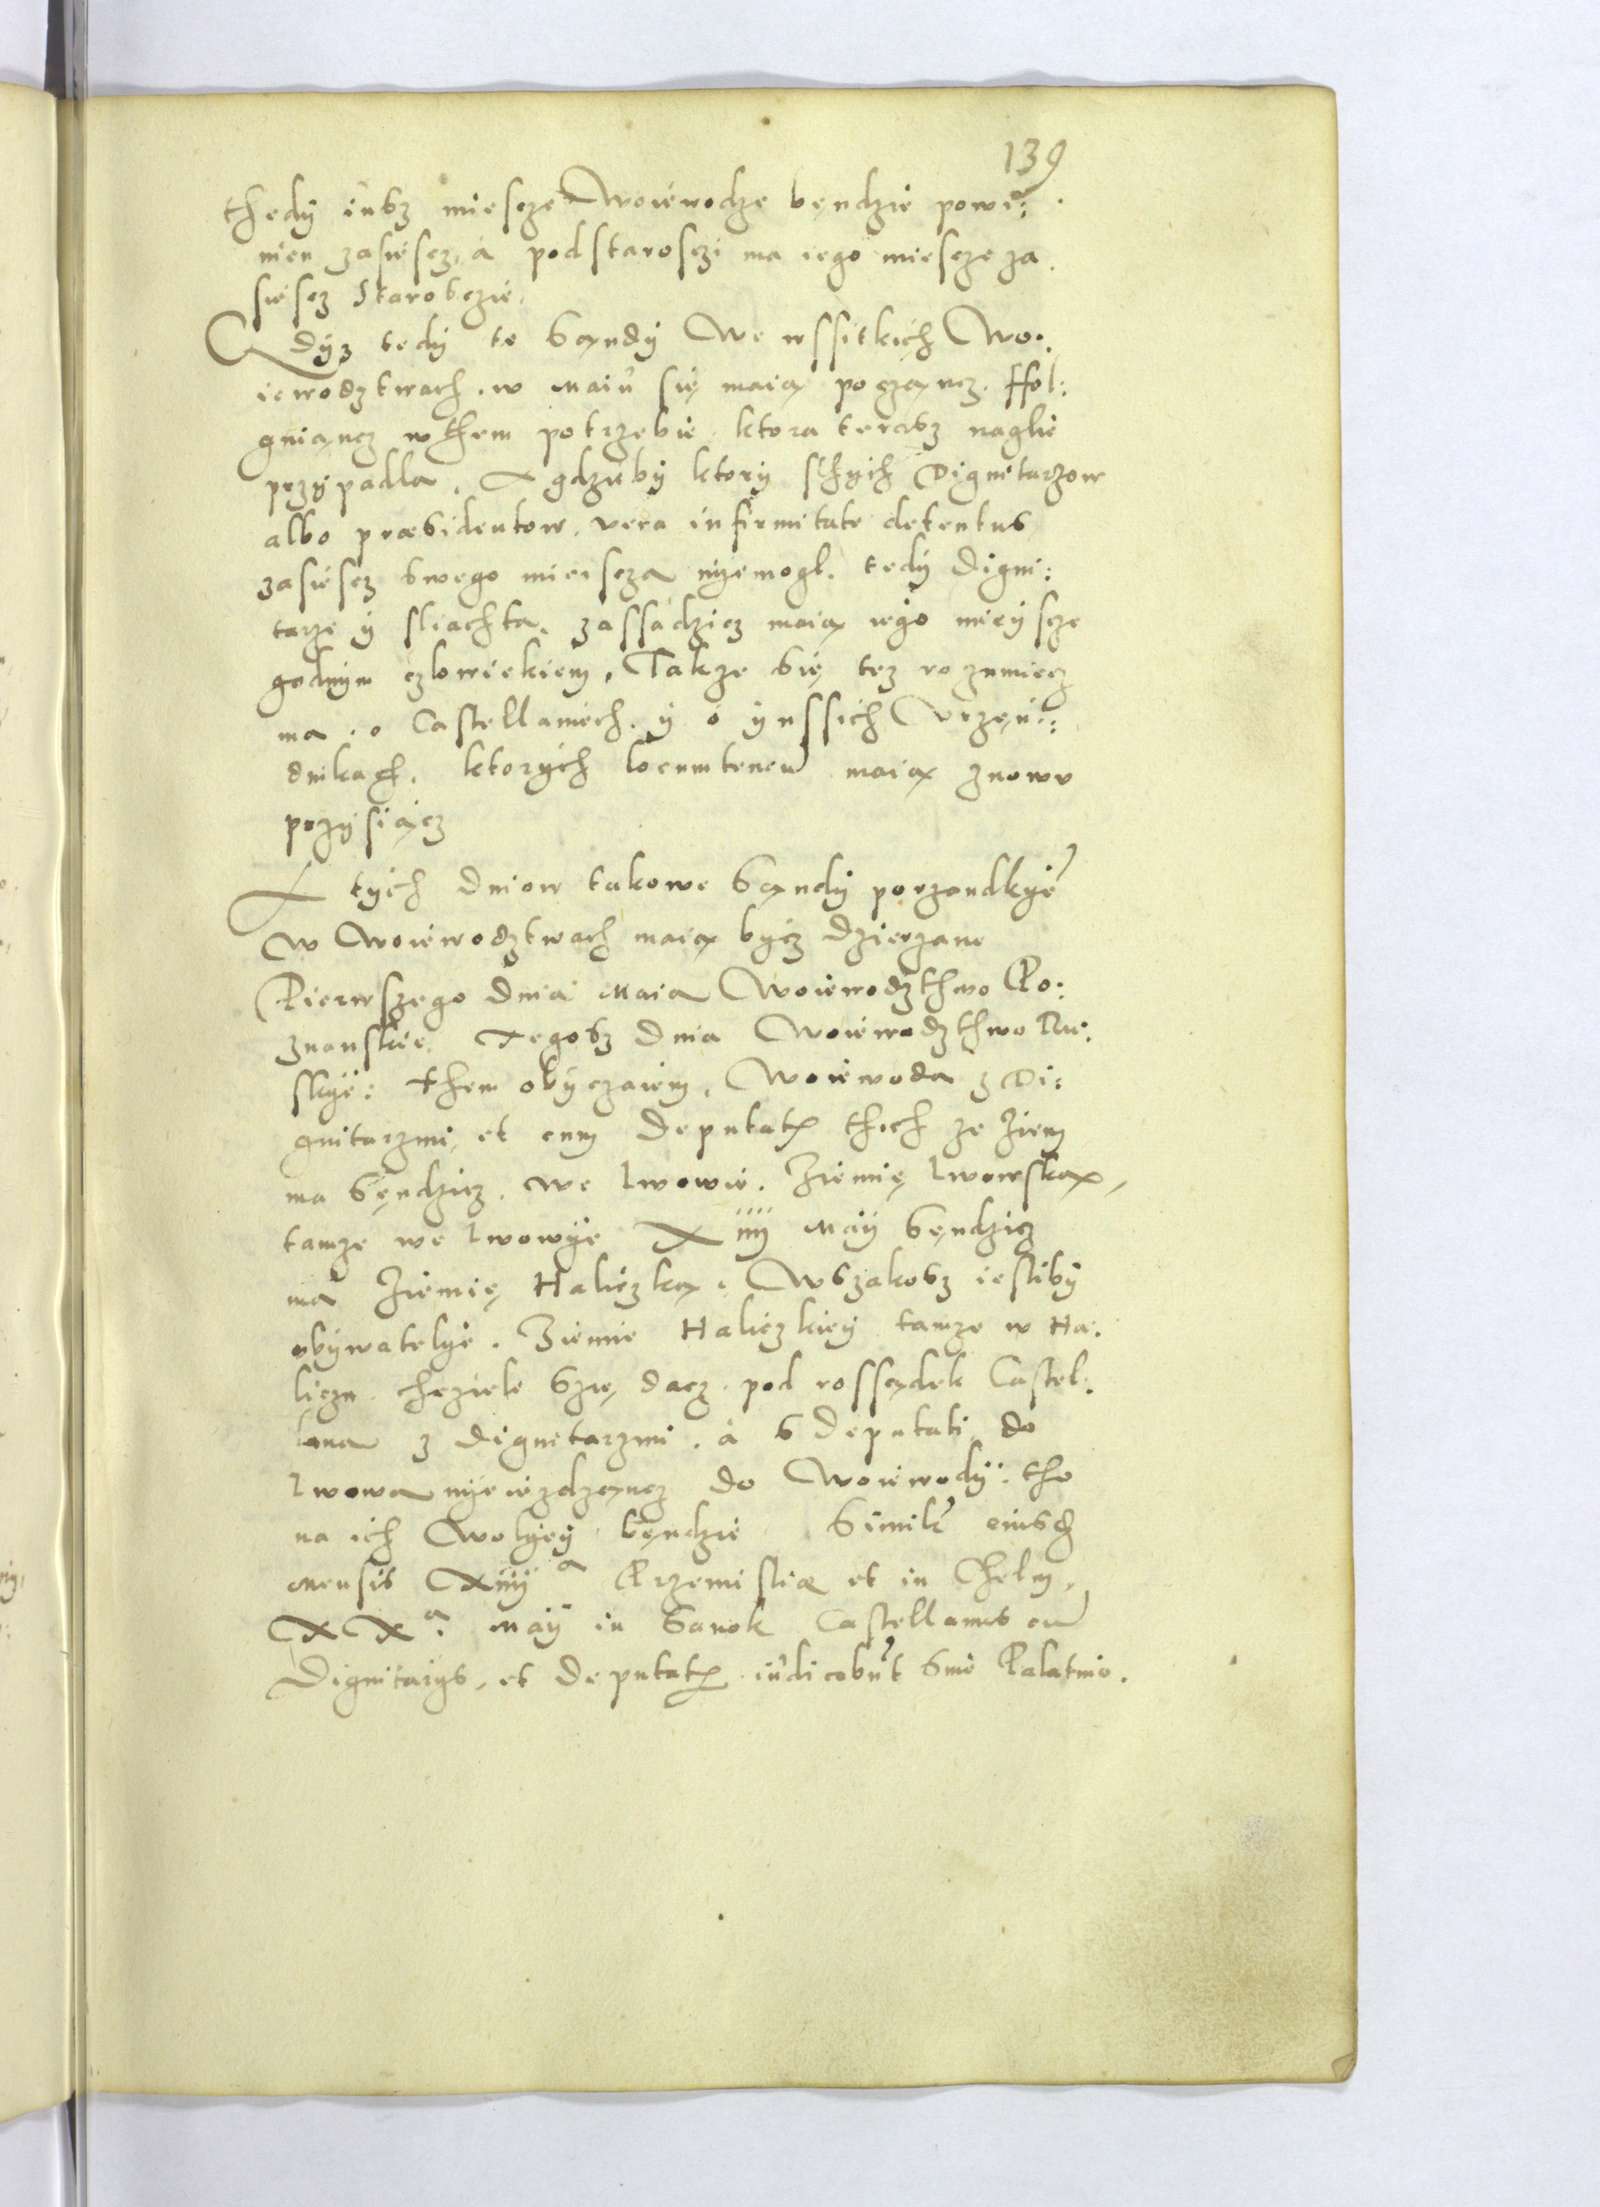 139
thedÿ iusz miescze Woiewodze będzie powi:
nien zasiescz, a podstarosczi ma iego miescze za
siescz Starosczie.
Gdÿz tedÿ te sąndÿ We wssitkich Wo:
iewodztwach. w Maiu się maią począcz. ffol:
gniąncz wthem potrzebie ktora terasz naglie
przÿpadla. A gdzieby ktorÿ sthÿch Dignitarzow
albo præsidentow, vera infirmitate detentus
zasiescz swego mieiscza nyemogl. tedÿ Digni:
tarze ÿ sliachta, zassadzicz maią iego mieÿscze
godnÿm czlowiekiem, Takze się tez rozumiecz
ma. o Castellaniech. ÿ o ÿnssich Vrzęn:
dnikach. ktorÿch locumtenen maią znowu
przÿsiącz
A tÿch dniow takowe sąndÿ porzondkÿe
w Woiewodztwach maią bycz dzierzane
Pierwszego dnia Maia Woiewodzthwo Po:
znanskie. Tegosz dnia Woiewodzthwo Ru:
skÿe: them obÿczaiem. Woiewoda z Di:
gnitarzmi et cum Deputat thich ze ziem
ma sęndzicz. we Lwowie. Ziemię Lwowską,
tamze we Lwowÿe Xiiij Maÿ sęndzicz
ma Ziemię Haliczką. Wszakosz iesliby
obÿwatelÿe. Ziemie Haliczkieÿ tamze w Ha:
liczu chczieli szię dacz pod rossądek Castel:
lana z Dignitarzmi. a s Deputati do
Lwowa nÿeiezdząncz do Woiewodÿ: tho
na ich Wolÿeÿ będzie Simil eiusd
mensis Xiiij a Przemisliæ et in Chelm,
XX a. Maÿ in Sanok Castellanus cu
Dignitarÿs, et Deputat iudicabut sine Palatino.